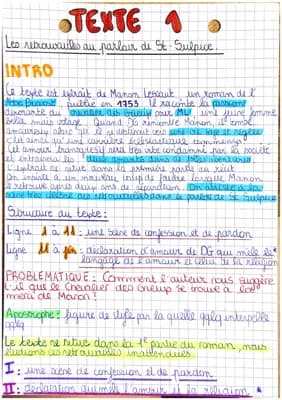 TEXTE 1
Les retrouvailles au parloir de St-Sulpice
INTRO
Ce texte est extrait de Manon Lescaut un roman de l'
Abbé Prévost, publié en 1753. Il raconte la passion
du chevalier des Grieux pour ML, une jeune femme
belle mais volage. Quand DG rencontre Manon, il tombe
amoureux alors qu'il se destinait vers une vie sage et réglée
C'est ainsi qu'une carrière ecclésiastique
Cet amour transgressif sera très vite condamné par la société
et entraînera les deux amants dans de
L'extrait se situe dans la première partie du récit
On assiste à un nouveau coup de théâtre lorsque Manon
le retrouve après deux ans de séparation. On assiste à la
scène des retrouvailles dans le parloir de St Sulpice
Structure du texte :
Ligne 1 à 11 : une scène de confession et de pardon
ligne 11 à fin : déclaration d'amour de DG qui mêle le
langage de l'amour et celui de la religion
PROBLEMATIQUE : Comment l'auteur nous suggère
t-il que le Chevalier des Grieux se trouve à
merci de Manon ?
Apostrophe : figure de style par laquelle qqlq interpelle
qqlq
Le texte se situe dans la 1e partie du roman, nous
étudions ces retrouvailles inattendues
I : une scène de confession et de pardon
II : déclaration qui mêle l'amour et la religion